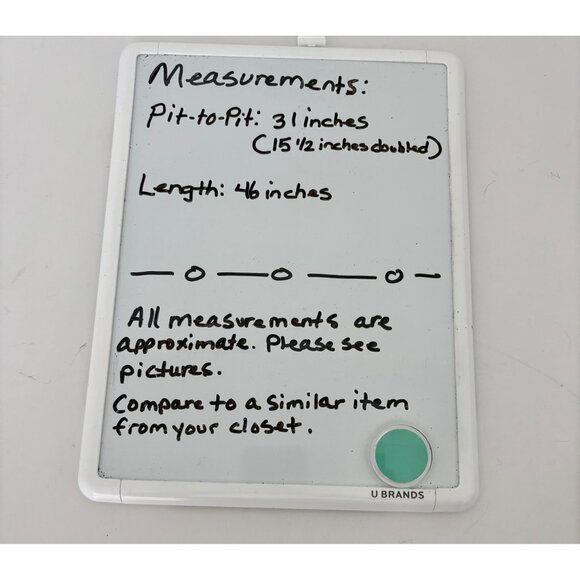 Measurements:
Pit-to-Pit: 31 inches
(15 1/2 inches doubled)
Length: 46 inches
All measurements are
approximate. Please see
pictures.
Compare to a similar item
from your closet.
U BRANDS